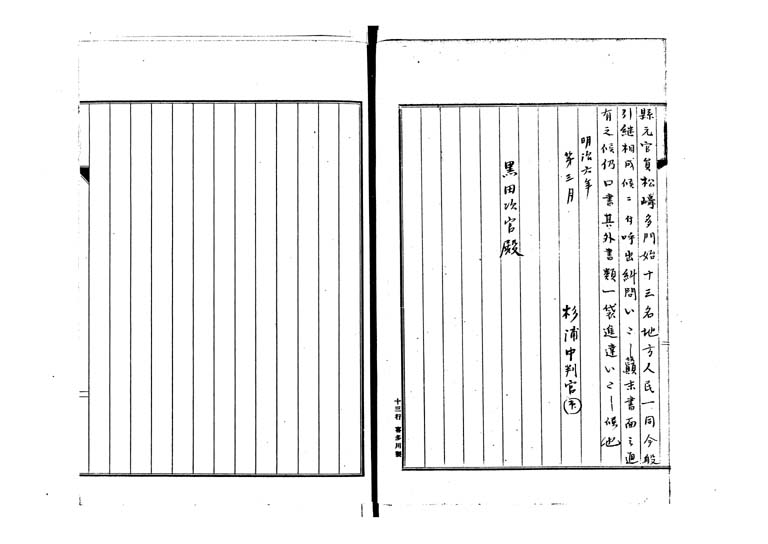 縣元官員松崎多門始十三名地方人民一同今般
引継相成候ニ付呼出糾問いたし候顛末書面之通
有之候仍口書其外書類一袋進達いたし候也
明治六年
第三月
杉浦中判官
黒田次官殿
十三行 喜多川製